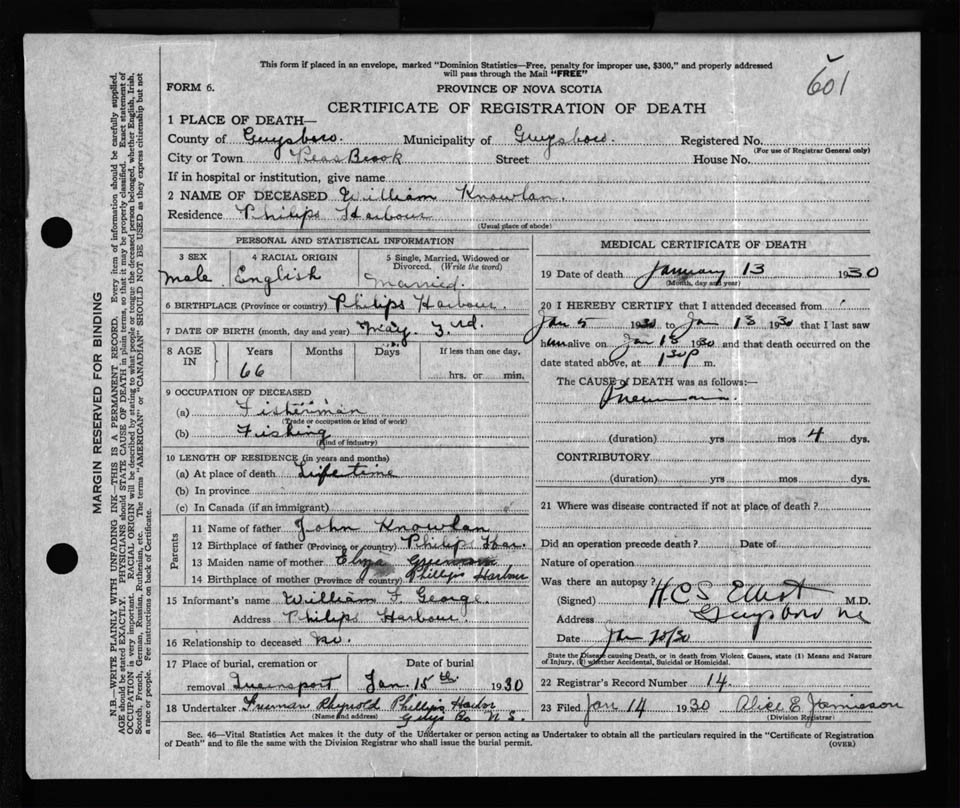 This form if placed in an envelope, marked "Dominion Statistics—Free, penalty for improper use, $300," and properly addressed
will pass through the Mail "FREE"
601
FORM 6.
PROVINCE OF NOVA SCOTIA
CERTIFICATE OF REGISTRATION OF DEATH
1 PLACE OF DEATH—
County of Guysboro. Municipality of Guysboro. Registered No.
(For use of Registrar General only)
City or Town Peas Brook Street House No.
If in hospital or institution, give name
2 NAME OF DECEASED William Knowlan.
Residence Philips Harbour
(Usual place of abode)
PERSONAL AND STATISTICAL INFORMATION
3 SEX 4 RACIAL ORIGIN 5 Single, Married, Widowed or
Divorced. (Write the word)
Male English Married.
6 BIRTHPLACE (Province or country) Philips Harbour.
7 DATE OF BIRTH (month, day and year) May 3rd.
8 AGE IN Years Months Days If less than one day,
66 hrs. or min.
9 OCCUPATION OF DECEASED
(a) Fisherman
(Trade or occupation or kind of work)
(b) Fishing
(Kind of industry)
10 LENGTH OF RESIDENCE (in years and months)
(a) At place of death Lifetime
(b) In province
(c) In Canada (if an immigrant)
Parents
11 Name of father John Knowlan
12 Birthplace of father (Province or country) Philips Har.
13 Maiden name of mother Eliza
14 Birthplace of mother (Province or country) Phillips Harbour
15 Informant's name William F George.
Address Philips Harbour.
16 Relationship to deceased no.
17 Place of burial, cremation or Date of burial
removal Queensport Jan. 15th 1930
18 Undertaker Freeman Rhynold Phillips Harbor
(Name and address) Guys Co N.S.
MEDICAL CERTIFICATE OF DEATH
19 Date of death January 13 1930
(Month, day and year)
20 I HEREBY CERTIFY that I attended deceased from
Jan 5 1930 to Jan 13 1930 that I last saw
him alive on Jan 13 1930 and that death occurred on the
date stated above, at 1 30 p m.
The CAUSE of DEATH was as follows:—
Pneumonia.
(duration) yrs mos 4 dys.
CONTRIBUTORY
(duration) yrs mos dys.
21 Where was disease contracted if not at place of death?
Did an operation precede death? Date of
Nature of operation
Was there an autopsy?
(Signed) H C S Elliot M.D.
Address Guysboro NS
Date Jan /30
State the Disease causing Death, or in death from Violent Causes, state (1) Means and Nature
of Injury, (2) whether Accidental, Suicidal or Homicidal.
22 Registrar's Record Number 14.
23 Filed Jan 14 1930 Alice E. Jamieson
(Division Registrar)
Sec. 46—Vital Statistics Act makes it the duty of the Undertaker or person acting as Undertaker to obtain all the particulars required in the "Certificate of Registration
of Death" and to file the same with the Division Registrar who shall issue the burial permit. (OVER)
MARGIN RESERVED FOR BINDING
N.B.—WRITE PLAINLY WITH UNFADING INK—THIS IS A PERMANENT RECORD. Every item of information should be carefully supplied.
AGE should be stated EXACTLY. PHYSICIANS should STATE CAUSE OF DEATH in plain terms, so that it may be properly classified. Exact statement of
OCCUPATION is very important. RACIAL ORIGIN will be described by stating to what people or tongue the deceased person belonged, whether English, Irish,
Scotch, French, German, Russian, Ruthenian, etc. The terms "AMERICAN" or "CANADIAN" SHOULD NOT BE USED as they express citizenship but not
a race or people. Fee instructions on back of Certificate.